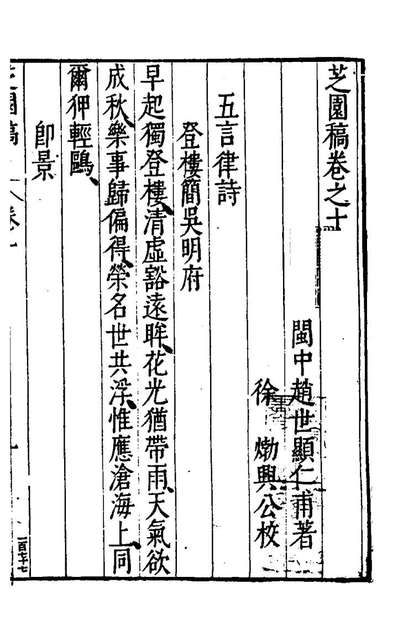 芝園稿卷之十
閩中趙世顯仁甫著
徐𤊹興公校
五言律詩
登樓簡吳明府
早起獨登樓、清虛豁遠眸、花光猶帶雨、天氣欲
成秋、樂事歸偏得、榮名世共浮、惟應滄海上、同
爾狎輕鷗、
卽景